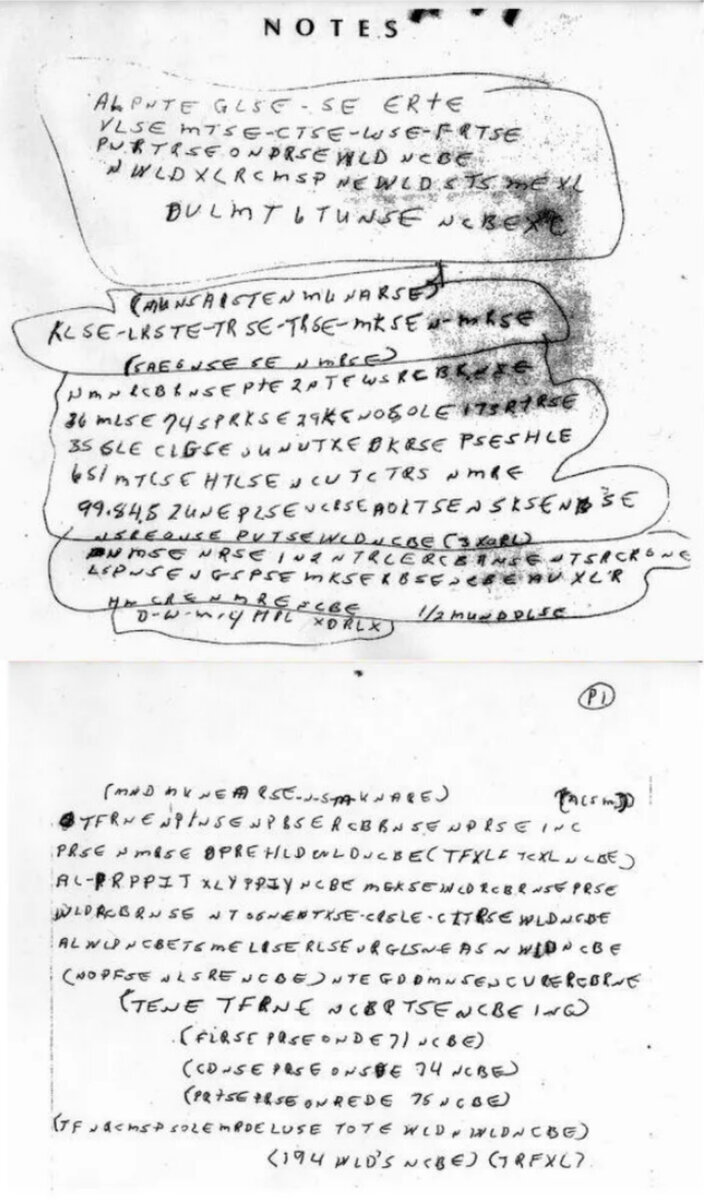 NOTES
ALPNTE GLSE-SE ERTE
VLSE MTSE-CTSE-WSE-FRTSE
PNRTRSE ONDRSE WLD NCBE
NWLD XLRCMSP NEWLD STS MEXL
DULMT 6 TUNSE NCBEXC
(MUNSAISTEN MUNARSE)
KLSE-LRSTE-TRSE-TRSE-MKSEN-MRSE
(SAEGNSE SE NMRSE)
NMNRCBRNSE PTE 2 PTEWSRCBRNSE
36 MLSE 74 SPRKSE 29 KENOSOLE 173 RTRSE
35 GLE CLGSE UNUTXE DKRSE PSESHLE
651 MTCSE HTLSE NCUTCTRS NMRE
99.84.5 2UNE PLSE NCRSE AOLTSE NSKSE NBSE
NSREONSE PUTSE WLD NCBE (3 XORL)
NMSE NRSE IN2 NTRLERCBRNSE NTSRCRONE
LSPNSE NGSPSE MKSERBSE NCBE AUXLR
HM CRE NMRE NCBE 1/2 MUNDDLSE
D-W-M-4 HPL XDRLX
P1
(MND MKNEARSE-N-S-M-KNARE) (ACSM)
TFRNE NPTNSE NPBSE RCBRNSE NPRSE INC
PRSE NMRSE OPREHLD WLD NCBE (TFXLF TCXL NCBE)
AL-PRPPIT XLY PPIY NCBE MGKSE WLD RCBRNSE PRSE
WLD RCBRNSE NTOSNENTXSE-CRSLE-CITRSE WLD NCBE
AL WLD NCBE TSME LRSE RLSE URGLSNE AS N WLD NCBE
(NOPFSE NLSRE NCBE) NTEGDDMNSENCURERCBRNE
(TENE TFRNE NCBRTSE NCBE INC)
(FLRSE PRSE ONDE 71 NCBE)
(CDNSE PRSE ONSDE 74 NCBE)
(PRTSE PRSE ONREDE 75 NCBE)
(TFNRCMSP SOLE MRDELUSE TOTE WLD N WLD NCBE)
(194 WLD'S NCBE) (TRFXL)